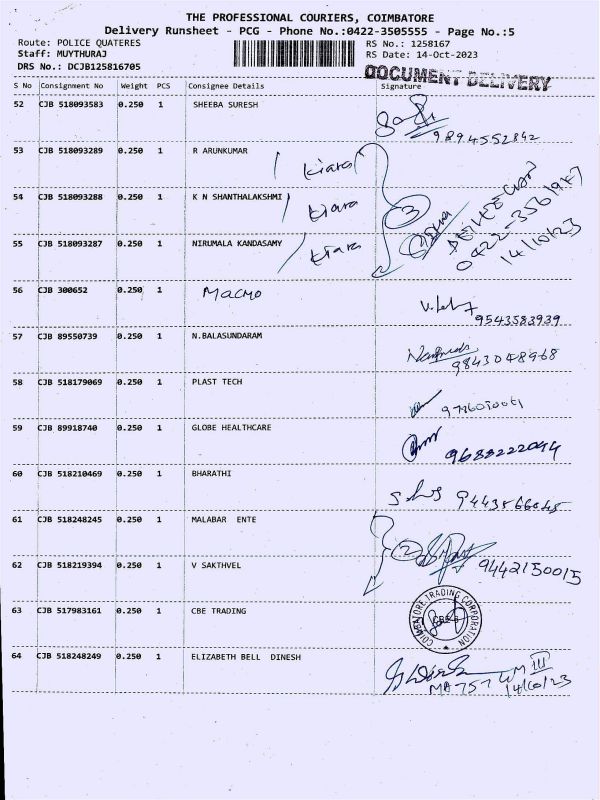 THE PROFESSIONAL COURIERS, COIMBATORE
Delivery Runsheet - PCG - Phone No.:0422-3505555 - Page No.:5
Route: POLICE QUATERES
RS No.: 1258167
Staff: MUYTHURAJ
RS Date: 14-Oct-2023
DRS No.: DCJB125816705
DOCUMENT DELIVERY
S No Consignment No Weight PCS Consignee Details Signature
52 CJB 518093583 0.250 1 SHEEBA SURESH
9894552842
53 CJB 518093289 0.250 1 R ARUNKUMAR
Kiara
54 CJB 518093288 0.250 1 K N SHANTHALAKSHMI
Kiara
3
14/10/23
55 CJB 518093287 0.250 1 NIRUMALA KANDASAMY
Kiara
56 CJB 300652 0.250 1 MACMO
9543583939
57 CJB 89550739 0.250 1 N.BALASUNDARAM
9843048968
58 CJB 518179069 0.250 1 PLAST TECH
59 CJB 89918740 0.250 1 GLOBE HEALTHCARE
9688222044
60 CJB 518210469 0.250 1 BHARATHI
9443566045
61 CJB 518248245 0.250 1 MALABAR ENTE
2
62 CJB 518219394 0.250 1 V SAKTHVEL
9442150015
63 CJB 517983161 0.250 1 CBE TRADING
COIMBATORE TRADING CORPORATION
64 CJB 518248249 0.250 1 ELIZABETH BELL DINESH
MA 757 WM III
14/10/23